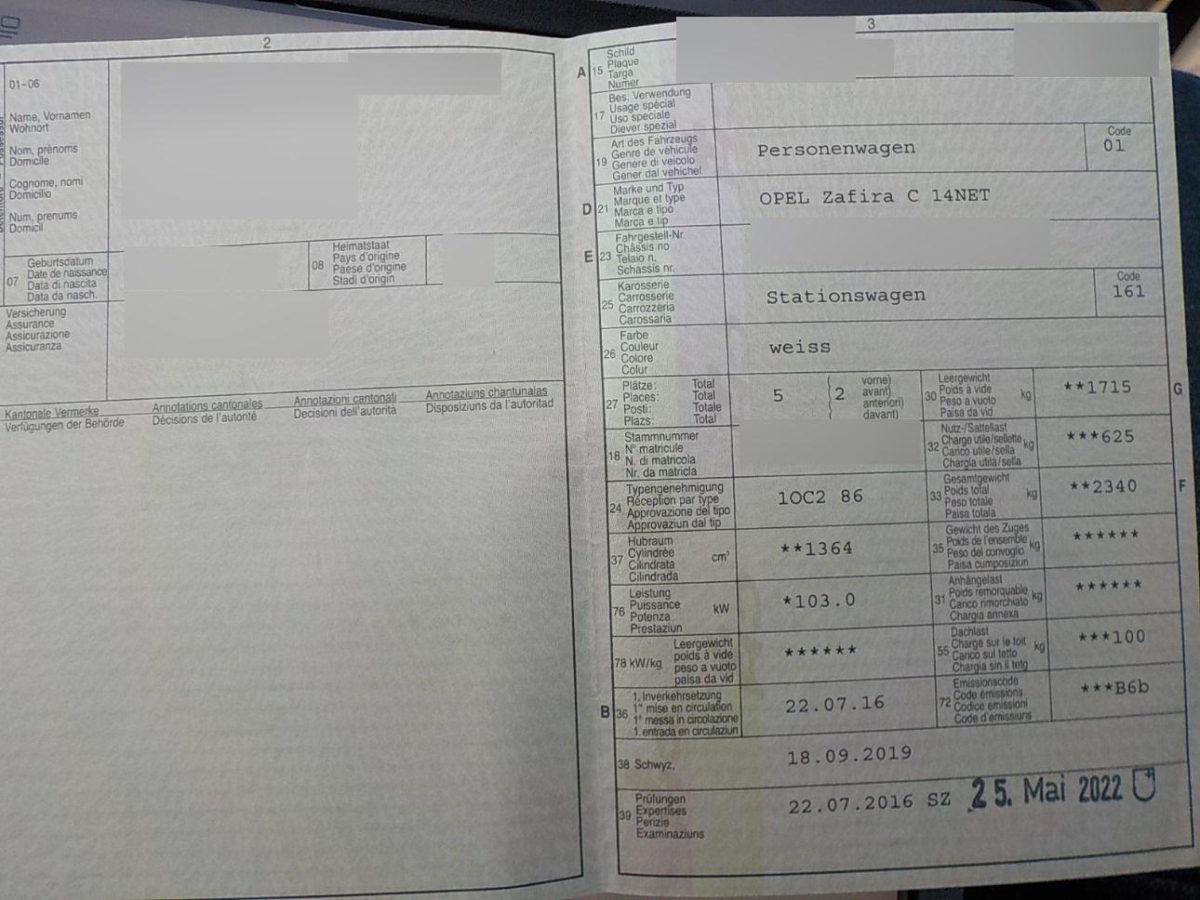 2
01-06
Name, Vornamen
Wohnort
Nom, prénoms
Domicile
Cognome, nomi
Domicilio
Num, prenums
Domicil
07
Geburtsdatum
Date de naissance
Data di nascita
Data da nasch.
08
Heimatstaat
Pays d'origine
Paese d'origine
Stadi d'origin
Versicherung
Assurance
Assicurazione
Assicuranza
Kantonale Vermerke
Verfügungen der Behörde
Annotations cantonales
Décisions de l'autorité
Annotazioni cantonali
Decisioni dell'autorità
Annotaziuns chantunalas
Disposiziuns da l'autoritad
3
A 15
Schild
Plaque
Targa
Numer
17
Bes. Verwendung
Usage spécial
Uso speciale
Diever spezial
19
Art des Fahrzeugs
Genre de véhicule
Genere di veicolo
Gener dal vehichel
Personenwagen
Code
01
D 21
Marke und Typ
Marque et type
Marca e tipo
Marca e tip
OPEL Zafira C 14NET
E 23
Fahrgestell-Nr.
Châssis no
Telaio n.
Schassis nr.
25
Karosserie
Carrosserie
Carrozzeria
Carossaria
Stationswagen
Code
161
26
Farbe
Couleur
Colore
Colur
weiss
27
Plätze: Total
Places: Total
Posti: Totale
Plazs: Total
5
2
vorne)
avant)
anteriori)
davant)
30
Leergewicht
Poids à vide
Peso a vuoto
Paisa da vid
kg
**1715
G
18
Stammnummer
N° matricule
N. di matricola
Nr. da matricla
32
Nutz-/Sattellast
Charge utile/sellette
Carico utile/sella
Chargia utila/sella
kg
***625
24
Typengenehmigung
Réception par type
Approvazione del tipo
Approvaziun dal tip
1OC2 86
33
Gesamtgewicht
Poids total
Peso totale
Paisa totala
kg
**2340
F
37
Hubraum
Cylindrée
Cilindrata
Cilindrada
cm³
**1364
35
Gewicht des Zuges
Poids de l'ensemble
Peso del convoglio
Paisa cumposiziun
kg
******
76
Leistung
Puissance
Potenza
Prestaziun
kW
*103.0
31
Anhängelast
Poids remorquable
Carico rimorchiato
Chargia annexa
kg
******
78 kW/kg
Leergewicht
poids à vide
peso a vuoto
paisa da vid
******
55
Dachlast
Charge sur le toit
Carico sul tetto
Chargia sin il tetg
kg
***100
B 36
1. Inverkehrsetzung
1re mise en circulation
1a messa in circolazione
1. entrada en circulaziun
22.07.16
72
Emissionscode
Code émissions
Codice emissioni
Code d'emissiuns
***B6b
38 Schwyz,
18.09.2019
39
Prüfungen
Expertises
Perizie
Examinaziuns
22.07.2016 SZ
25. Mai 2022